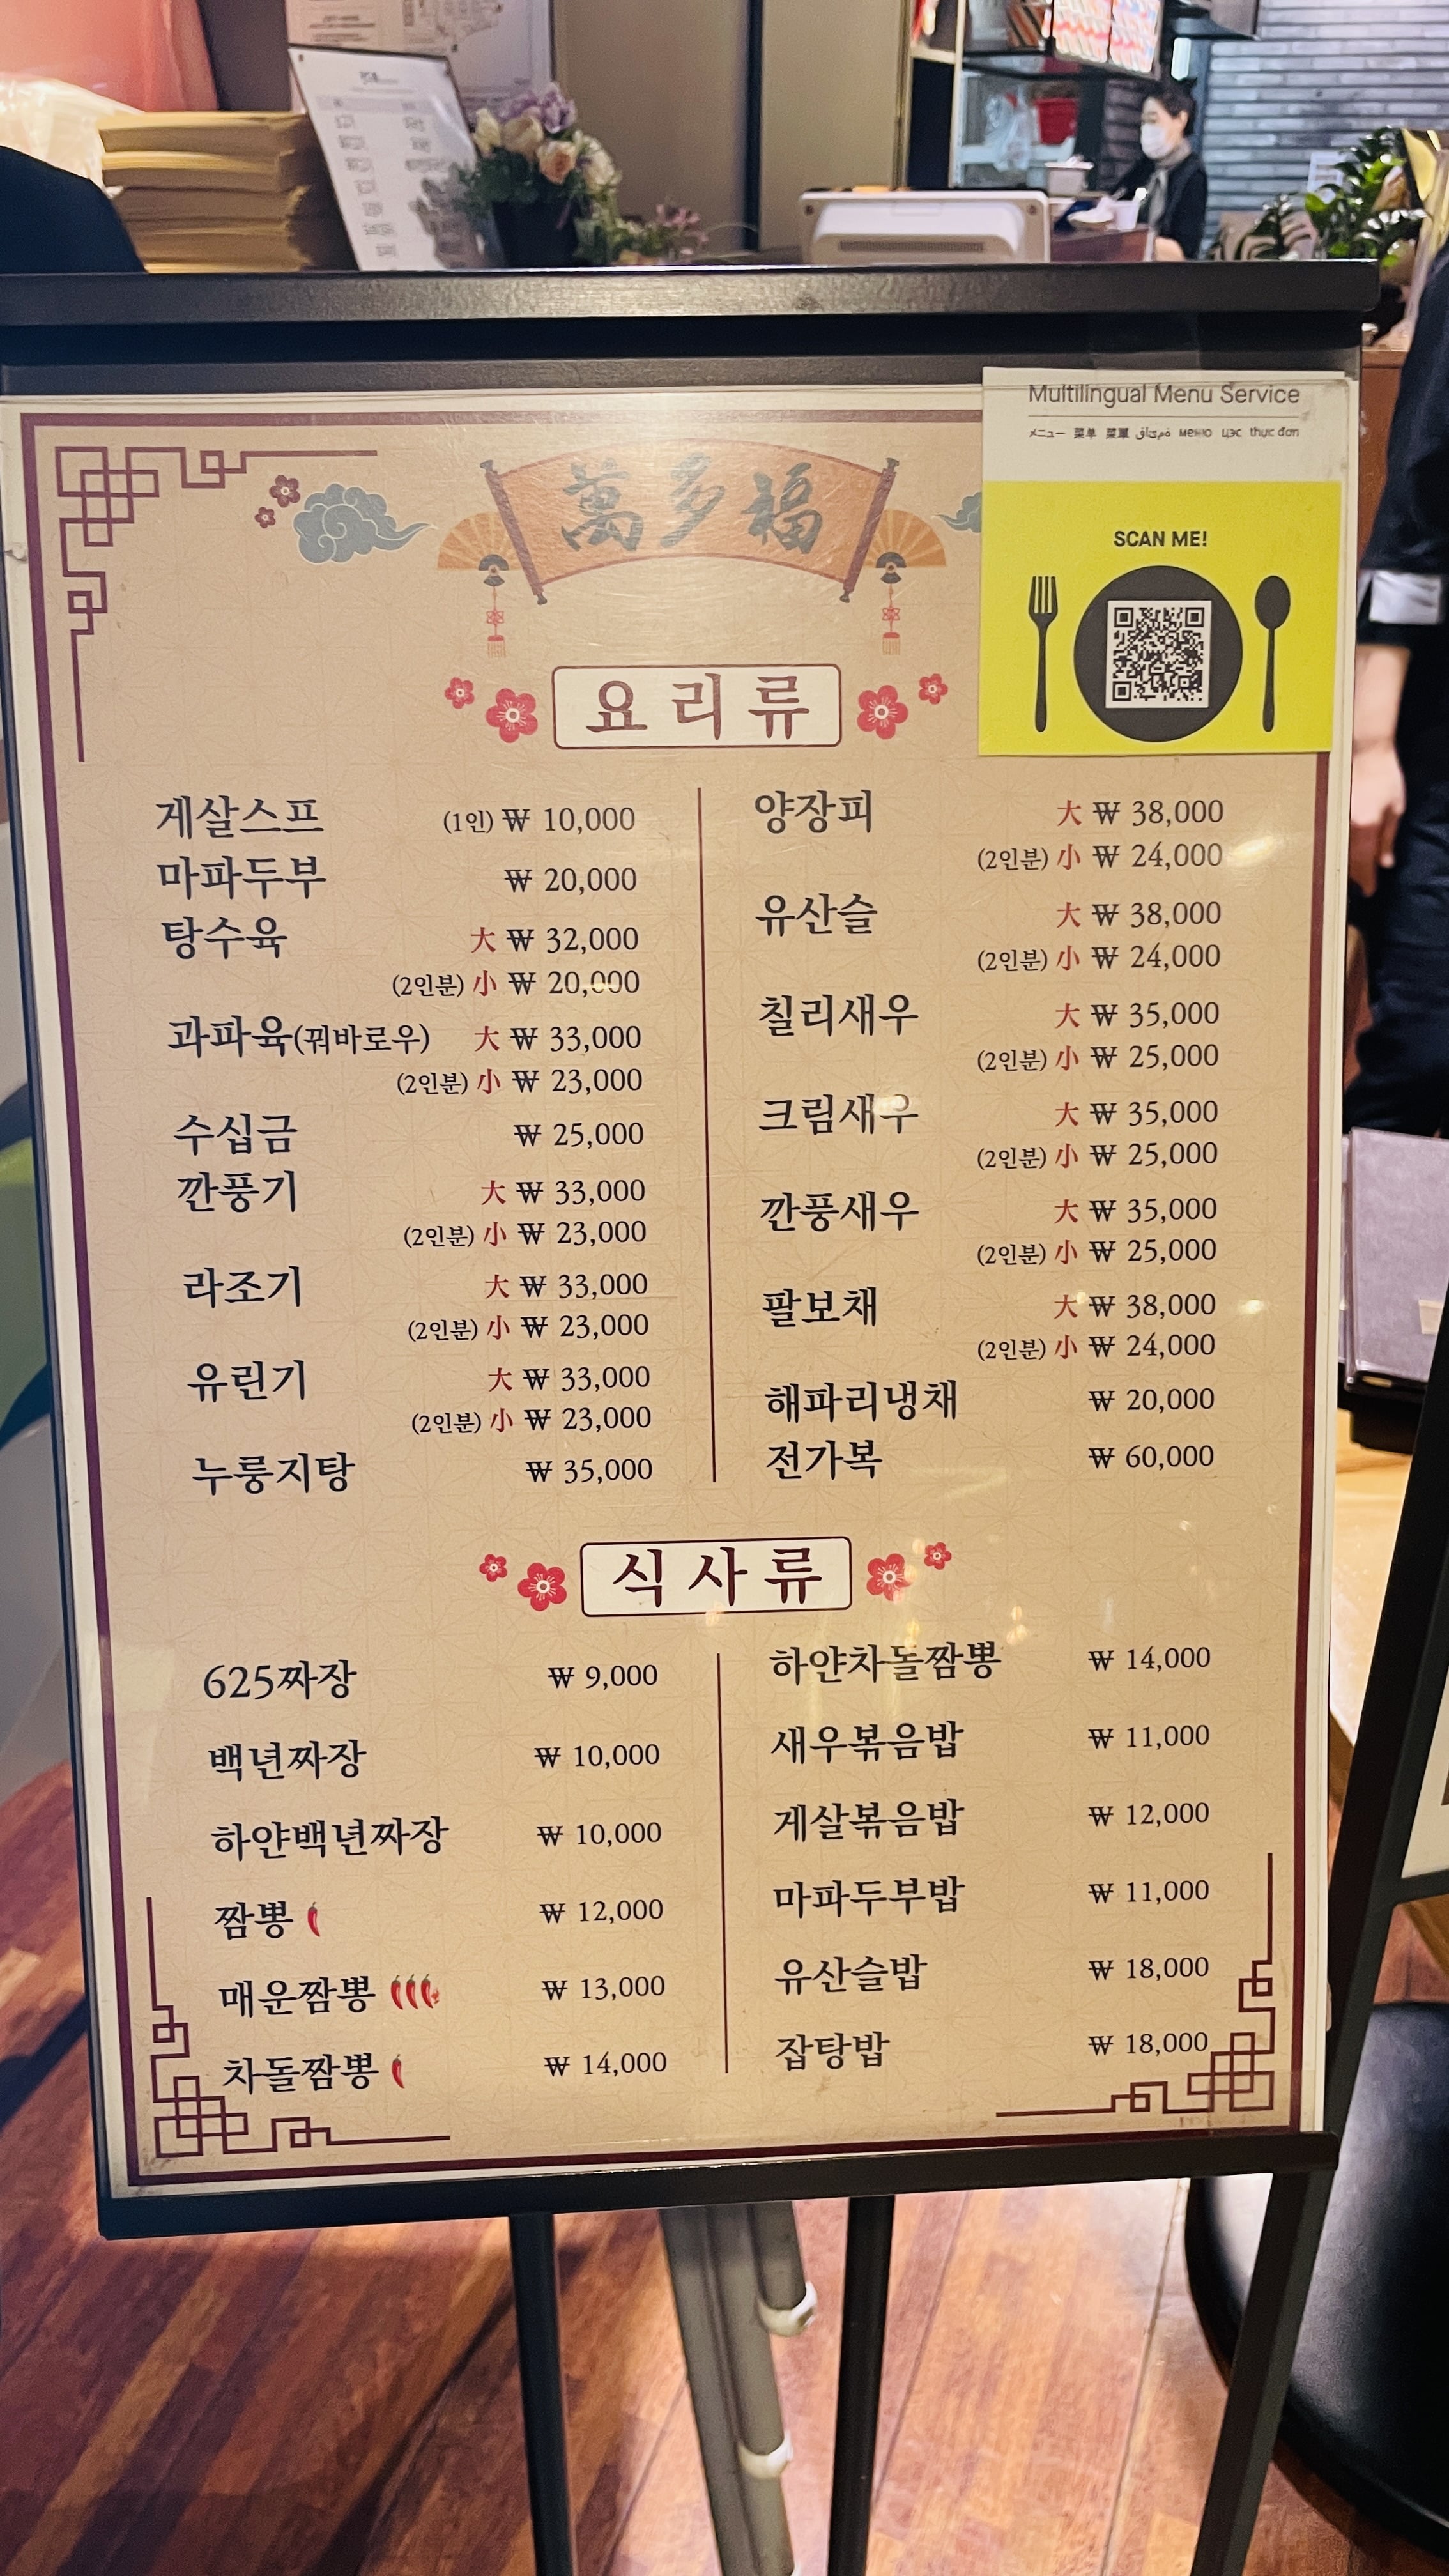 Multilingual Menu Service
メニュー 菜单 菜單 قائمة меню цэс thực đơn
SCAN ME!
萬多福
요리류
게살스프 (1인) ₩ 10,000
마파두부 ₩ 20,000
탕수육 大 ₩ 32,000
(2인분) 小 ₩ 20,000
과파육(꿔바로우) 大 ₩ 33,000
(2인분) 小 ₩ 23,000
수십금 ₩ 25,000
깐풍기 大 ₩ 33,000
(2인분) 小 ₩ 23,000
라조기 大 ₩ 33,000
(2인분) 小 ₩ 23,000
유린기 大 ₩ 33,000
(2인분) 小 ₩ 23,000
누룽지탕 ₩ 35,000
양장피 大 ₩ 38,000
(2인분) 小 ₩ 24,000
유산슬 大 ₩ 38,000
(2인분) 小 ₩ 24,000
칠리새우 大 ₩ 35,000
(2인분) 小 ₩ 25,000
크림새우 大 ₩ 35,000
(2인분) 小 ₩ 25,000
깐풍새우 大 ₩ 35,000
(2인분) 小 ₩ 25,000
팔보채 大 ₩ 38,000
(2인분) 小 ₩ 24,000
해파리냉채 ₩ 20,000
전가복 ₩ 60,000
식사류
625짜장 ₩ 9,000
백년짜장 ₩ 10,000
하얀백년짜장 ₩ 10,000
짬뽕 ₩ 12,000
매운짬뽕 ₩ 13,000
차돌짬뽕 ₩ 14,000
하얀차돌짬뽕 ₩ 14,000
새우볶음밥 ₩ 11,000
게살볶음밥 ₩ 12,000
마파두부밥 ₩ 11,000
유산슬밥 ₩ 18,000
잡탕밥 ₩ 18,000